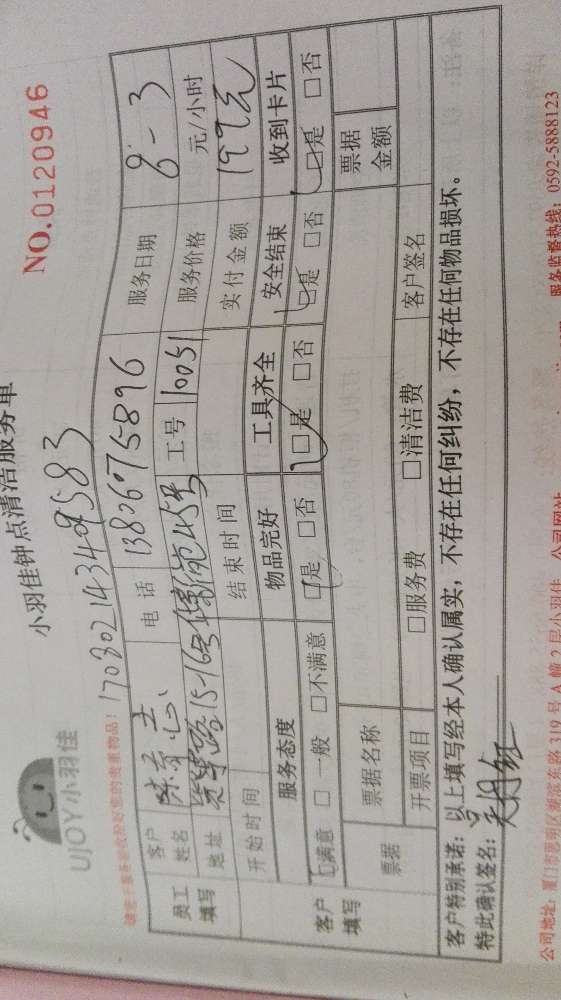 UJOY小羽佳
小羽佳钟点清洁服务单
NO.0120946
请您于服务前收拾好您的贵重物品!
17080214349583
员工填写
客户姓名
电话 13806075896
服务日期 8-3
地址
工号 10051
服务价格 元/小时
开始时间
结束时间
实付金额 199元
客户填写
服务态度 物品完好 工具齐全 安全结束 收到卡片
□满意 □一般 □不满意 □是 □否 □是 □否 □是 □否 □是 □否
票据
票据名称
票据金额
开票项目 □服务费 □清洁费 客户签名
客户特别承诺:以上填写经本人确认属实,不存在任何纠纷,不存在任何物品损坏。
特此确认签名:
公司地址:厦门市思明区湖滨东路319号A幢2层小羽佳 公司网站
服务监督热线:0592-5888123